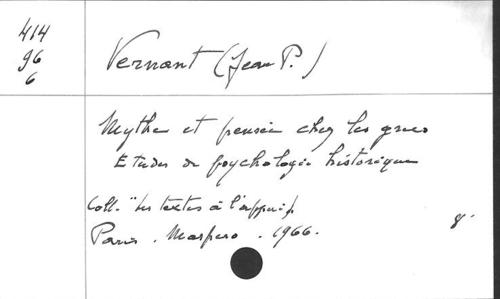 414
96
6
Vernant (Jean P.)
Mythe et pensée chez les grecs
Etudes de psychologie historique
Coll. "Les textes à l'appui".
Paris. Maspero. 1966.
8°